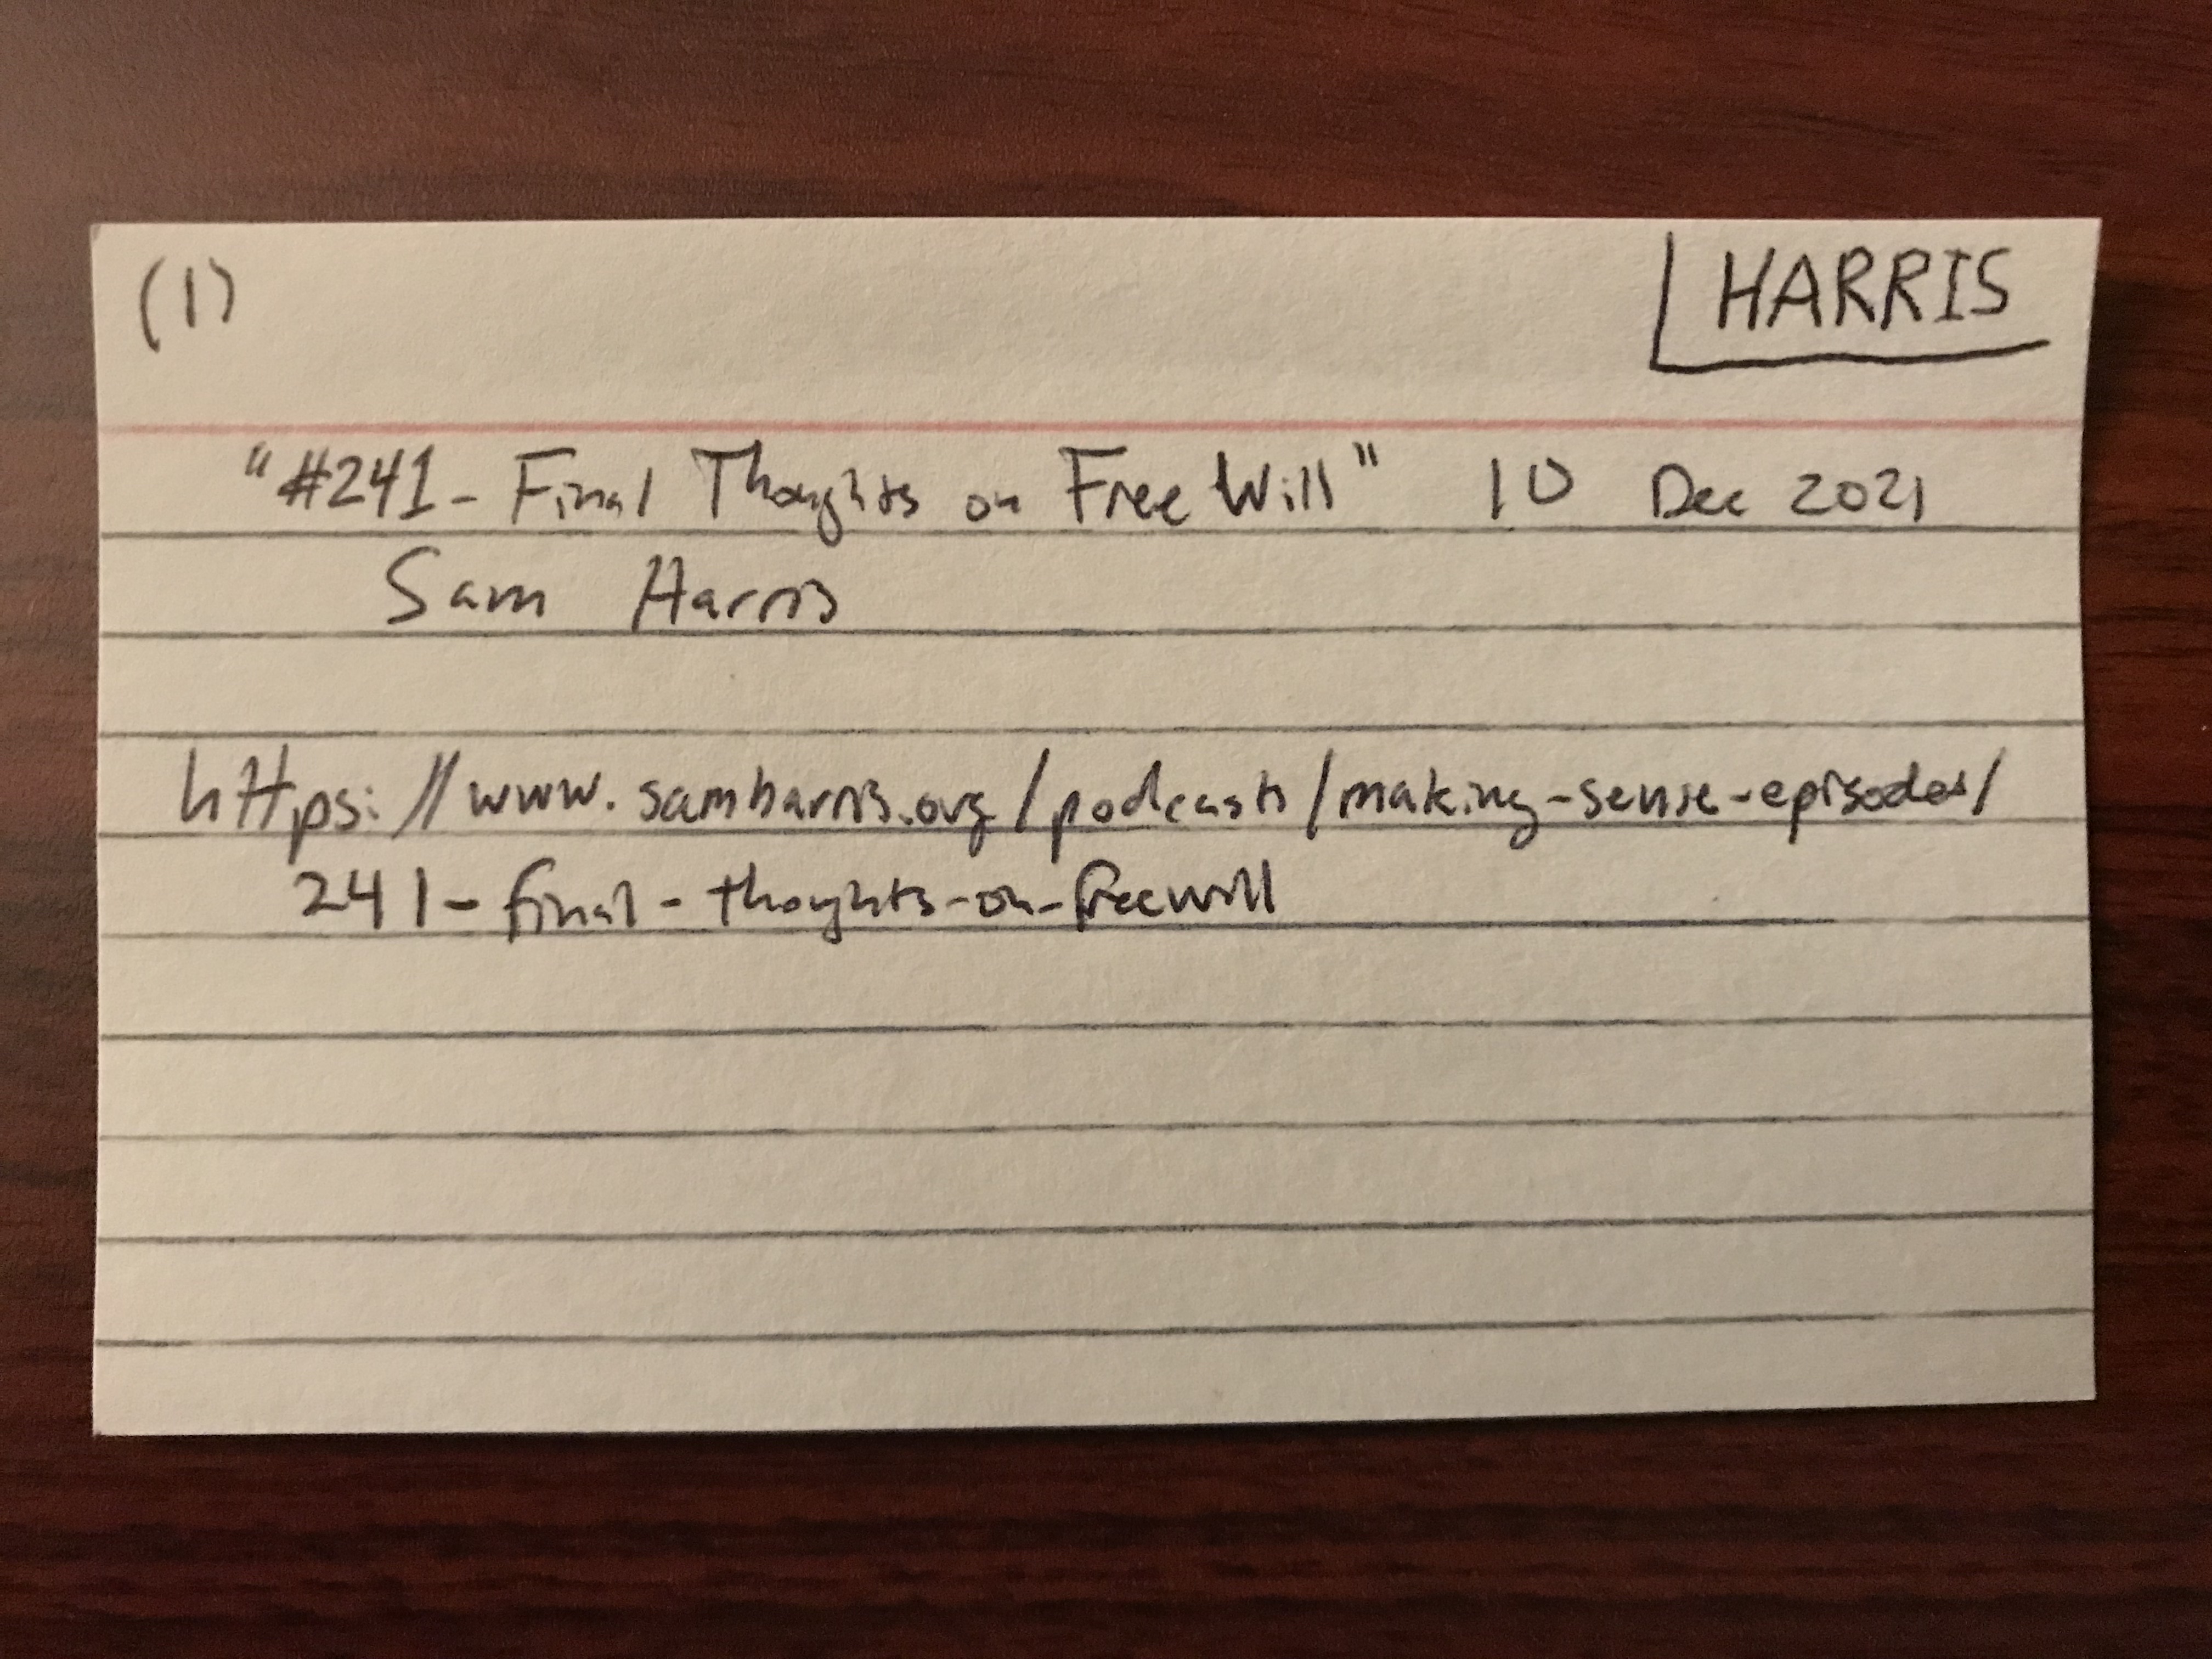 (1)
HARRIS
"#241- Final Thoughts on Free Will" 10 Dec 2021
Sam Harris
https://www.samharris.org/podcasts/making-sense-episodes/
241-final-thoughts-on-freewill